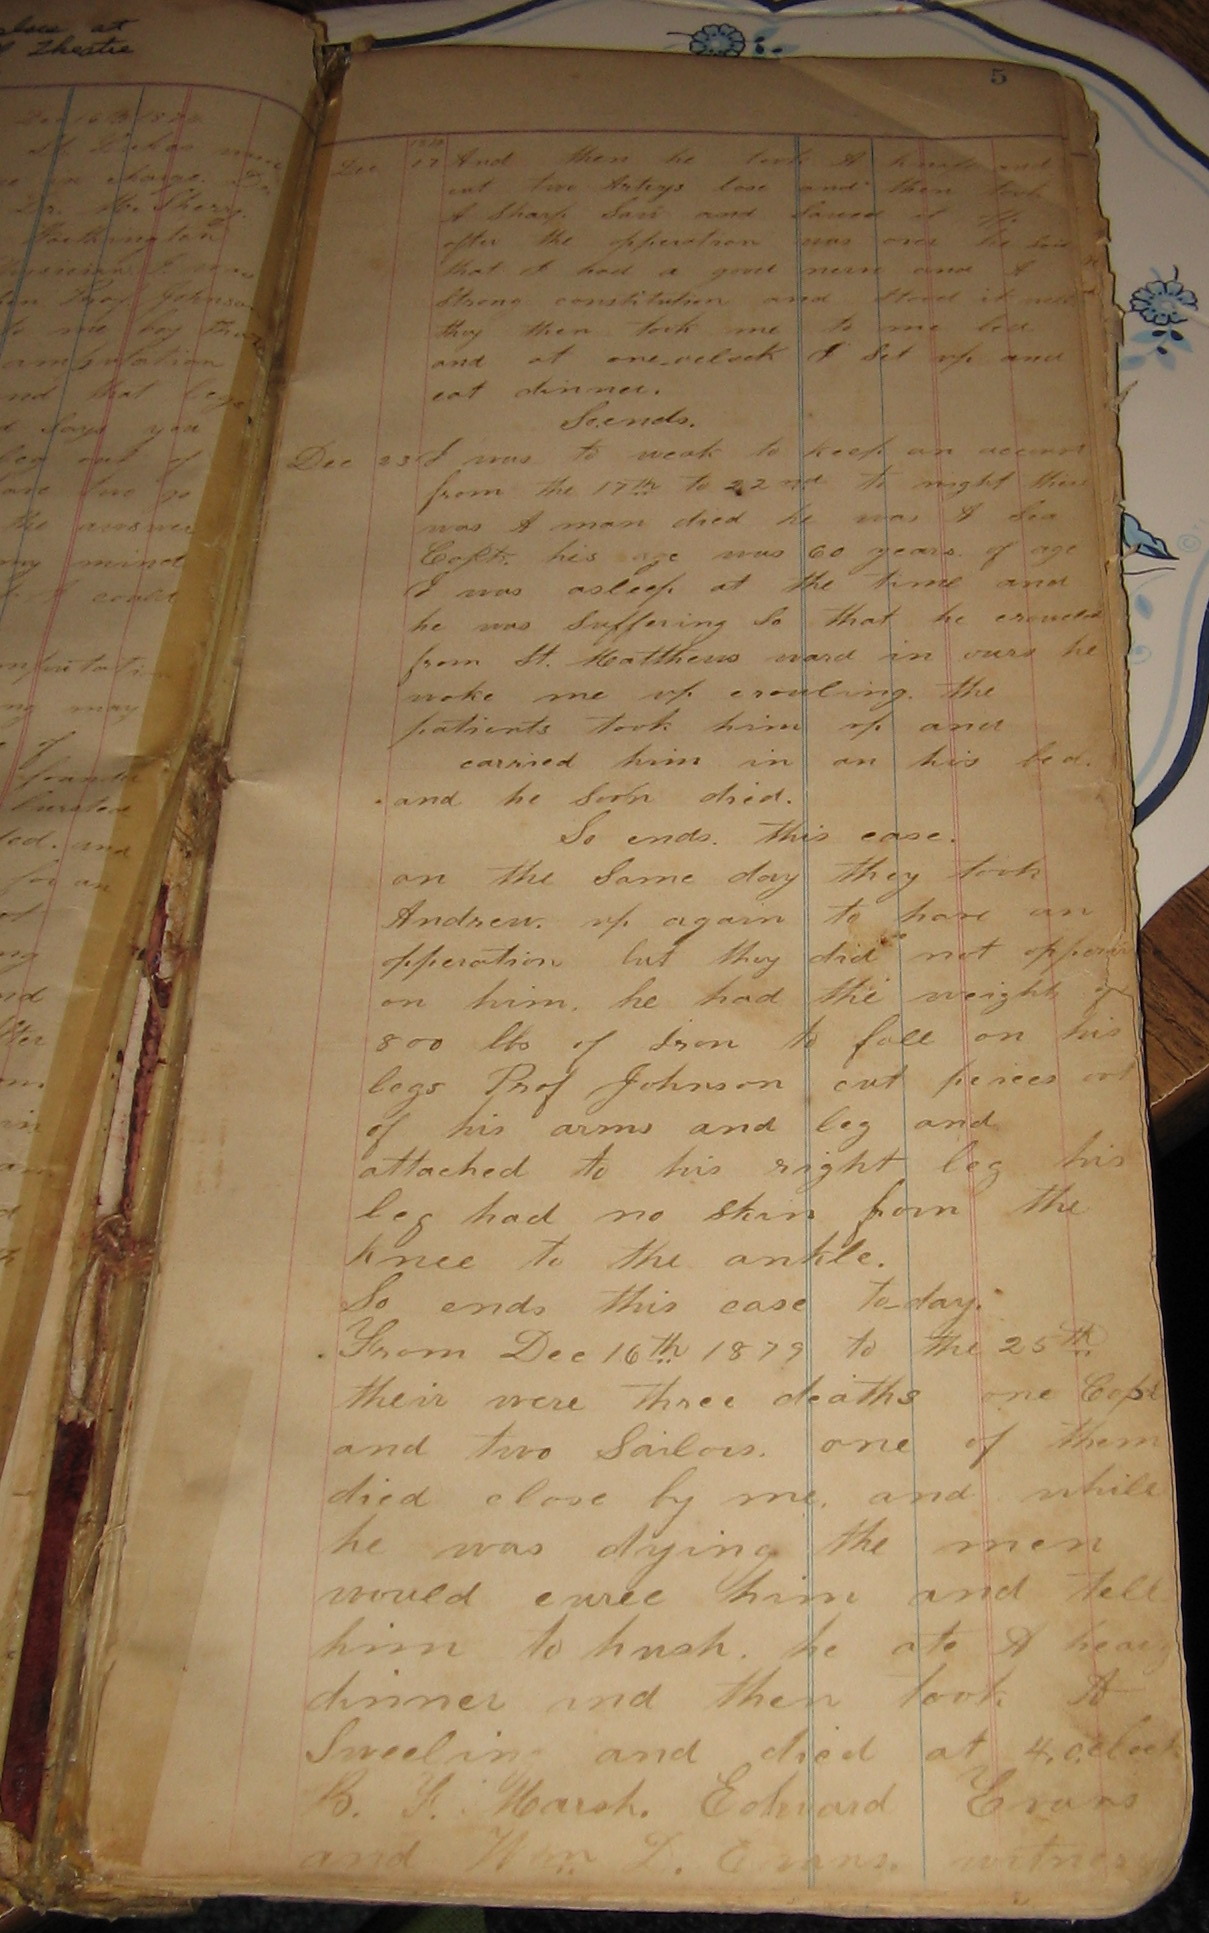 close at
Theatre
Dec 16th 1879
St. Lukes
in charge. Dr
Dr. Mc Sherry.
Worthington
Physician I was
Prof Johnson
to me boy
ambutation
and that legs
Says you
leg out of
have two
the answer
my mind
could
may
of
led. and
for an
5
1879
Dec 17 And then he took A knife and
cut two Arterys lose and then took
A Sharp Saw and Sawed it off.
after the opperation was over he said
that I had a good nerve and A
Strong constitution and stood it well
they then took me to me bed
and at one oclock I Set up and
eat dinner.
So ends.
Dec 23 I was to weak to keep an account
from the 17th to 22nd to night there
was A man died he was A Sea
Capt. his age was 60 years of age
I was asleep at the time and
he was Suffering So that he crowled
from St. Matthews ward in ours he
woke me up crouling. the
patients took him up and
carried him in on his bed.
and he Soon died.
So ends. this case.
on the Same day they took
Andrew. up again to have an
opperation but they did not opperate
on him. he had the weight of
800 lbs of Iron to fall on his
legs Prof Johnson cut peices out
of his arms and leg and
attached to his right leg his
leg had no skin from the
knee to the ankle.
So ends this case to-day.
From Dec 16th 1879 to the 25th
their were three deaths one Capt
and two Sailors. one of them
died close by me. and while
he was dying the men
would curse him and tell
him to hush. he ate A heavy
dinner and then took A
Sweeling and died at 4. oclock
B. F. Marsh. Edward Evans
and Wm D. Evans. witness